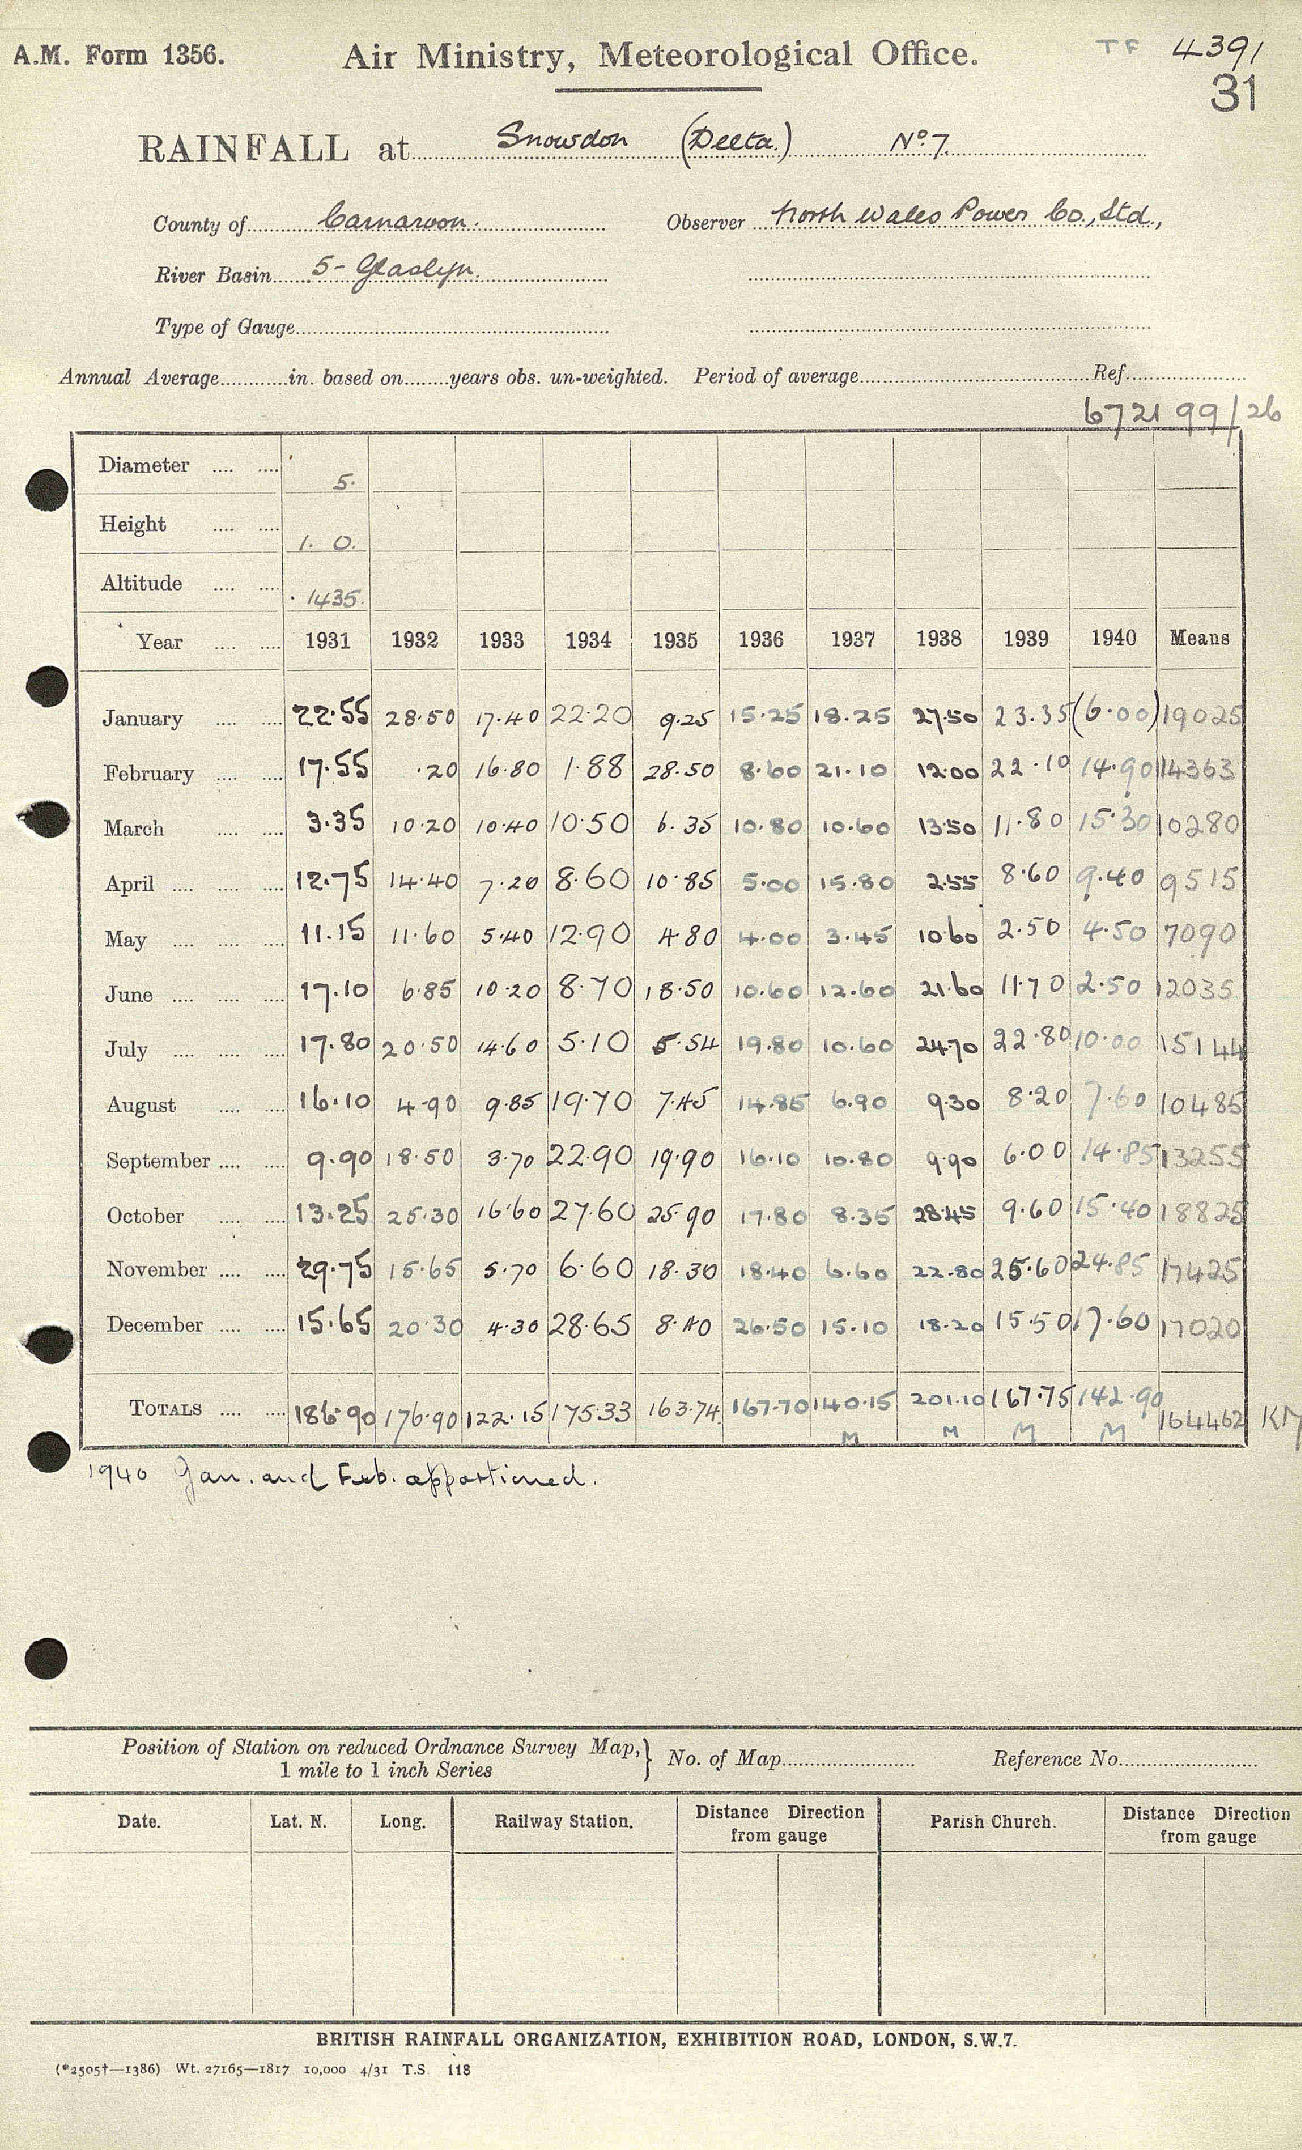 A.M. Form 1356. Air Ministry, Meteorological Office. TF 4391
31
RAINFALL at Snowdon (Delta) No 7
County of Carnarvon. Observer North Wales Power Co., Ltd.,
River Basin 5- Glaslyn.
Type of Gauge
Annual Average in. based on years obs. un-weighted. Period of average Ref.
672199/26
Diameter 5.
Height 1. 0.
Altitude 1435.
Year 1931 1932 1933 1934 1935 1936 1937 1938 1939 1940 Means
January 22.55 28.50 17.40 22.20 9.25 15.25 18.25 27.50 23.35 (6.00) 19025
February 17.55 .20 16.80 1.88 28.50 8.60 21.10 12.00 22.10 14.90 14363
March 3.35 10.20 10.40 10.50 6.35 10.80 10.60 13.50 11.80 15.30 10280
April 12.75 14.40 7.20 8.60 10.85 5.00 15.80 2.55 8.60 9.40 9515
May 11.15 11.60 5.40 12.90 4.80 4.00 3.45 10.60 2.50 4.50 7090
June 17.10 6.85 10.20 8.70 18.50 10.60 12.60 21.60 11.70 2.50 12035
July 17.80 20.50 14.60 5.10 5.54 19.80 10.60 24.70 22.80 10.00 15144
August 16.10 4.90 9.85 19.70 7.45 14.85 6.90 9.30 8.20 7.60 10485
September 9.90 18.50 3.70 22.90 19.90 16.10 10.80 9.90 6.00 14.85 13255
October 13.25 25.30 16.60 27.60 25.90 17.80 8.35 28.45 9.60 15.40 18825
November 29.75 15.65 5.70 6.60 18.30 18.40 6.60 22.80 25.60 24.85 17425
December 15.65 20.30 4.30 28.65 8.40 26.50 15.10 18.20 15.50 17.60 17020
TOTALS 186.90 176.90 122.15 175.33 163.74 167.70 140.15 201.10 167.75 142.90 164462 KM
M M M M
1940 Jan. and Feb. apportioned.
Position of Station on reduced Ordnance Survey Map, } No. of Map Reference No.
1 mile to 1 inch Series
Date. Lat. N. Long. Railway Station. Distance Direction from gauge Parish Church. Distance Direction from gauge
BRITISH RAINFALL ORGANIZATION, EXHIBITION ROAD, LONDON, S.W.7.
(*2505†—1386) Wt. 27165—1817 10,000 4/31 T.S. 118